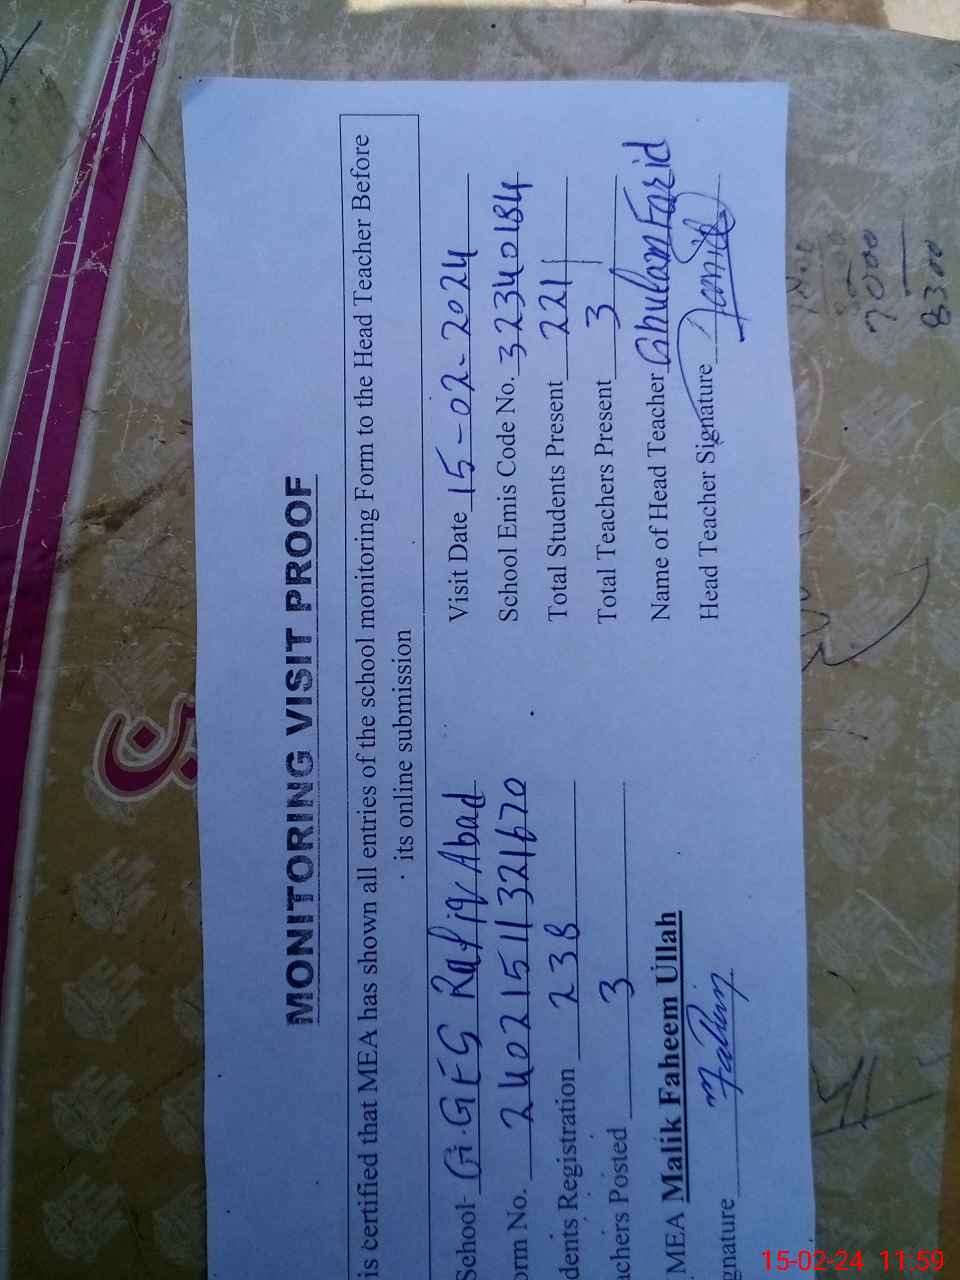 MONITORING VISIT PROOF
is certified that MEA has shown all entries of the school monitoring Form to the Head Teacher Before
its online submission
School- G.GES Rafiq Abad
Visit Date 15-02-2024
orm No. 24021511321670
School Emis Code No. 32340184
dents Registration 238
Total Students Present 221
achers Posted 3
Total Teachers Present 3
MEA Malik Faheem Ullah
Name of Head Teacher Ghulam Farid
gnature Fahim
Head Teacher Signature
7000
8300
15-02-24 11:59